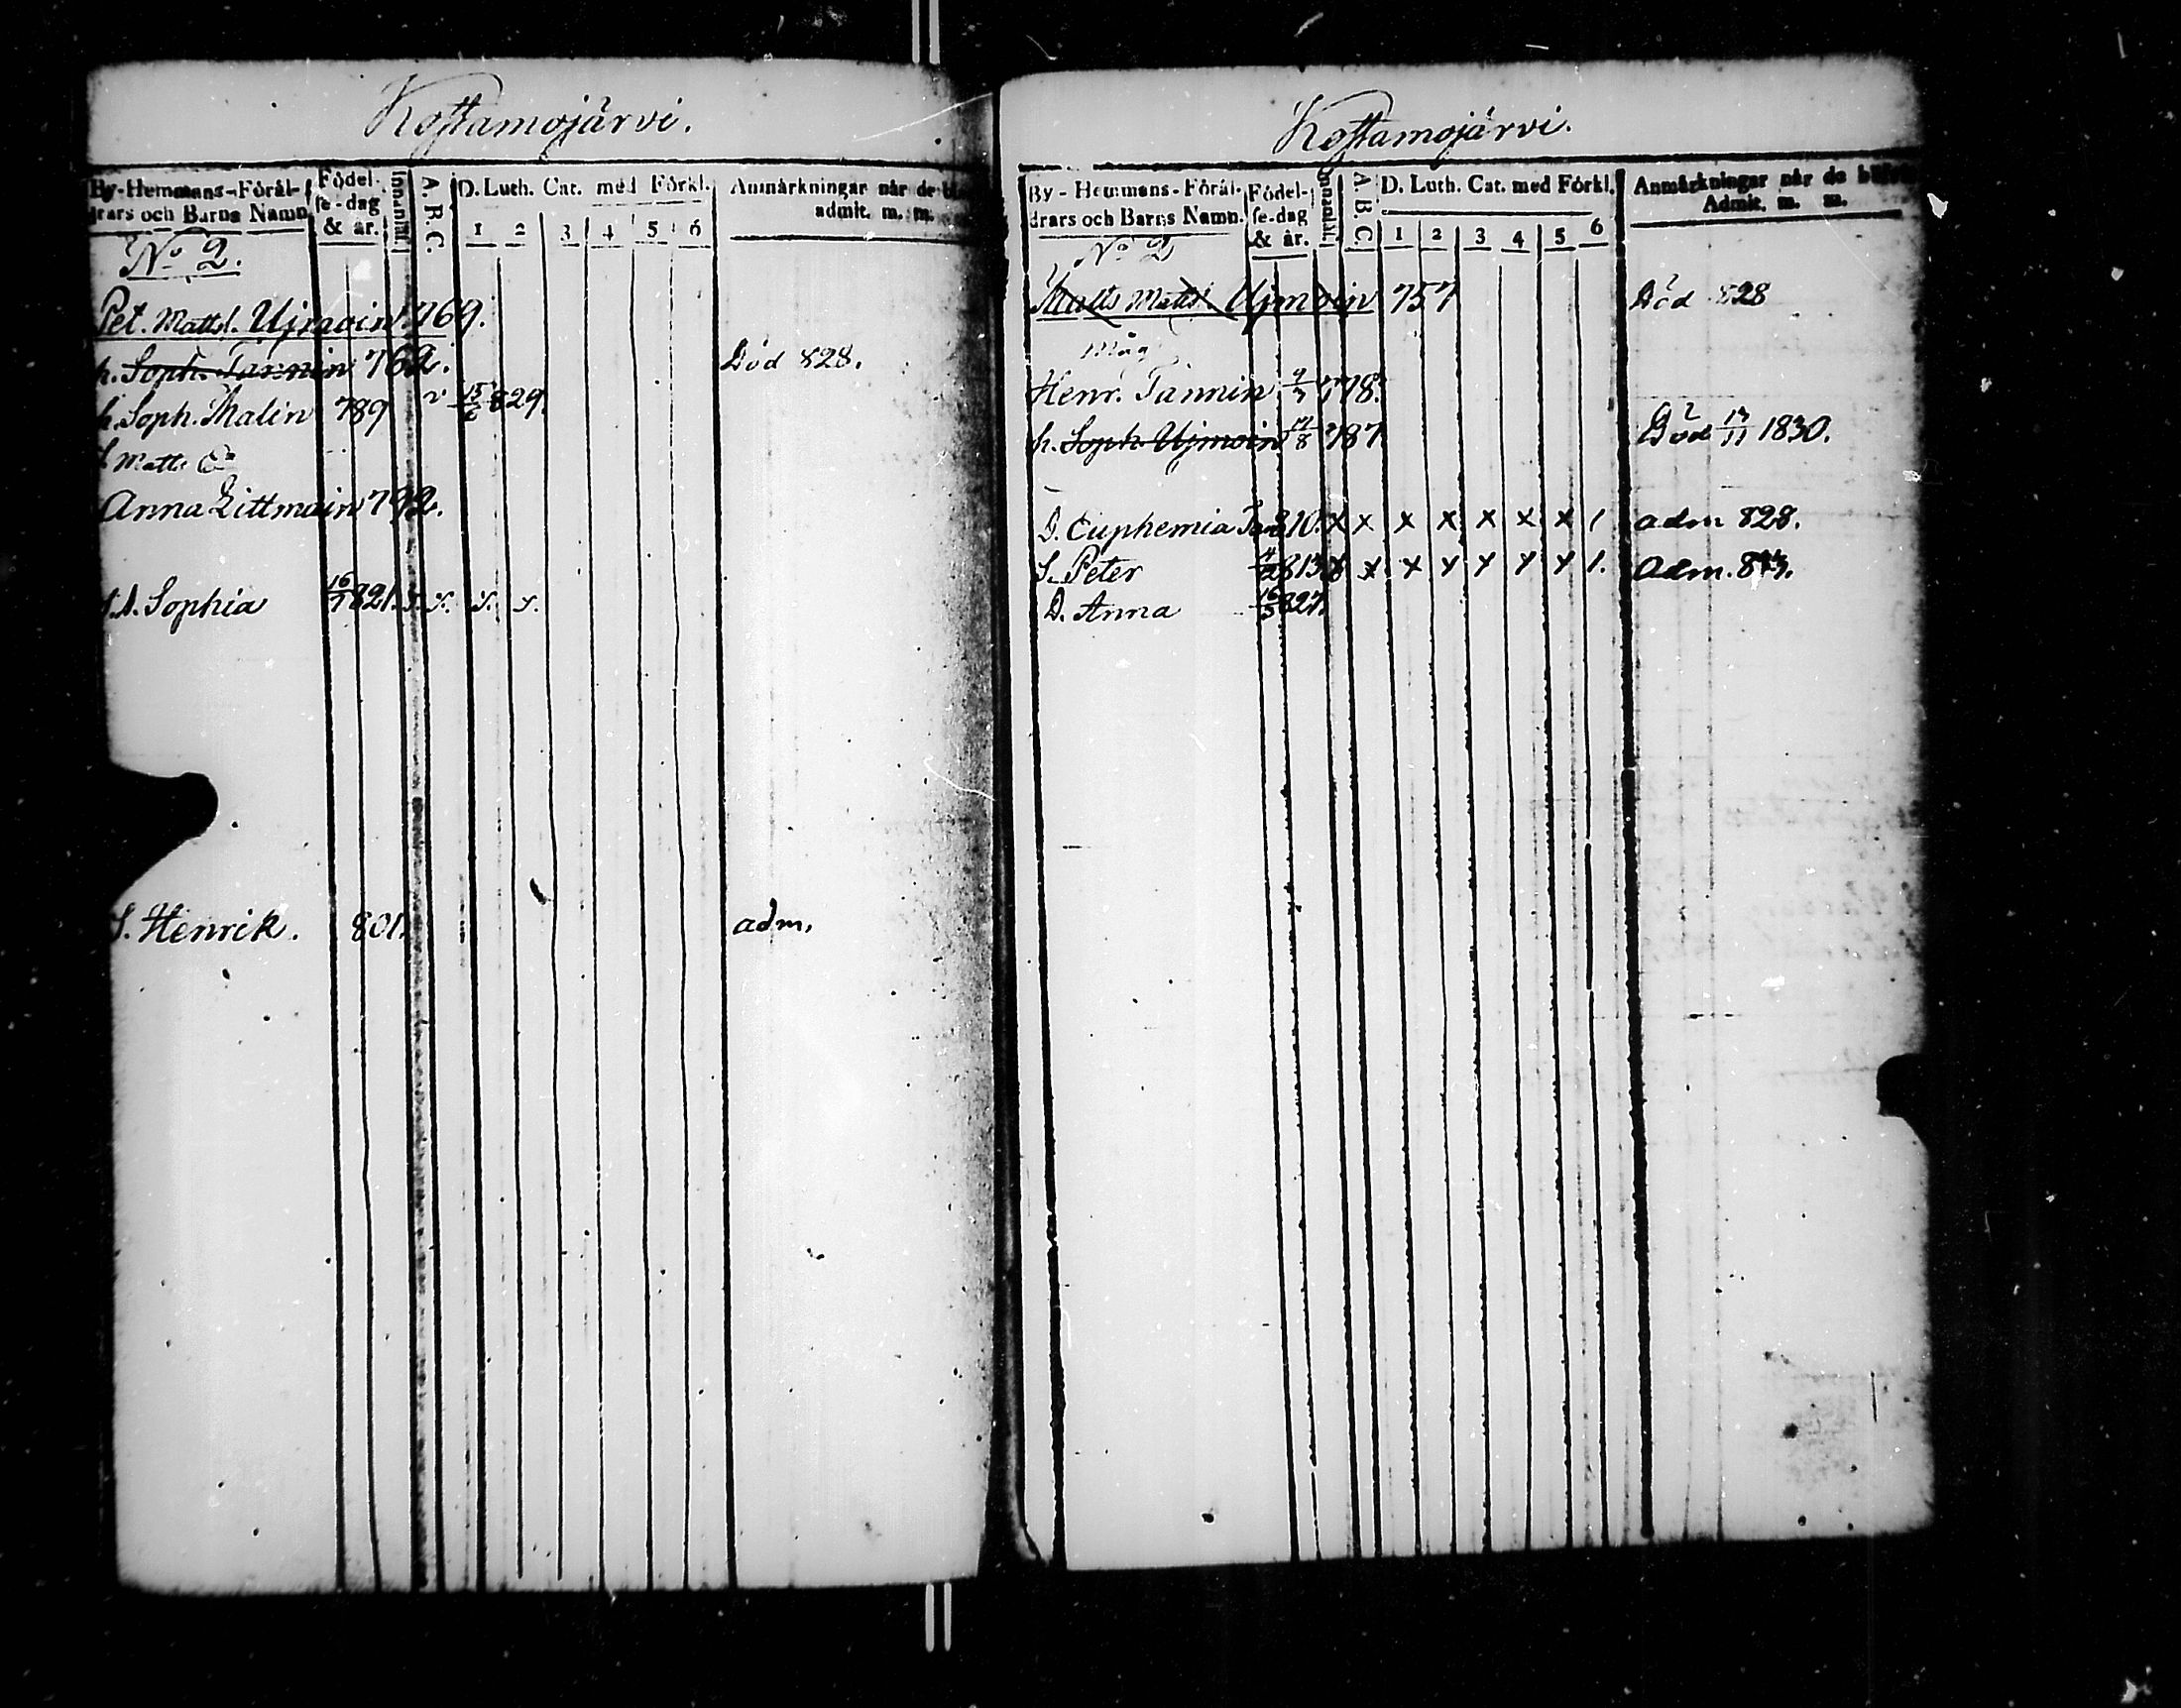 Kostamojärvi.
By-Hemmans-Föräl-
drars och Barns Namn
Födel-
se-dag
& år.
Innanläs.
A.B.C.
D. Luth. Cat. med Förkl.
1 2 3 4 5 6
Anmärkningar når de
admit. m. m.
No 2.
Pet. Matts. Ujmoin 769.
h. Soph. Tannin 762. Död 828.
h. Soph. Malin 789 15/6 829.
Matts
Anna Littmain 792.
Sophia 16/7 821.
S. Henrik. 801. adm.
Kostamojärvi.
By-Hemmans-Föräl-
drars och Barns Namn.
Födel-
se-dag
& år.
Innanläs.
A.B.C.
D. Luth. Cat. med Förkl.
1 2 3 4 5 6
Anmärkningar når de
Admit. m. m.
No 2
Matts Matts. Ujmoin 757 Död 828
Måg
Henr. Tannin 778.
h. Soph. Ujmoin 787 Död 13/11 1830.
D. Euphemia 810. x x x x x x x adm 828.
S. Peter 813 x x x x x x adm.
D. Anna 16/5 827.